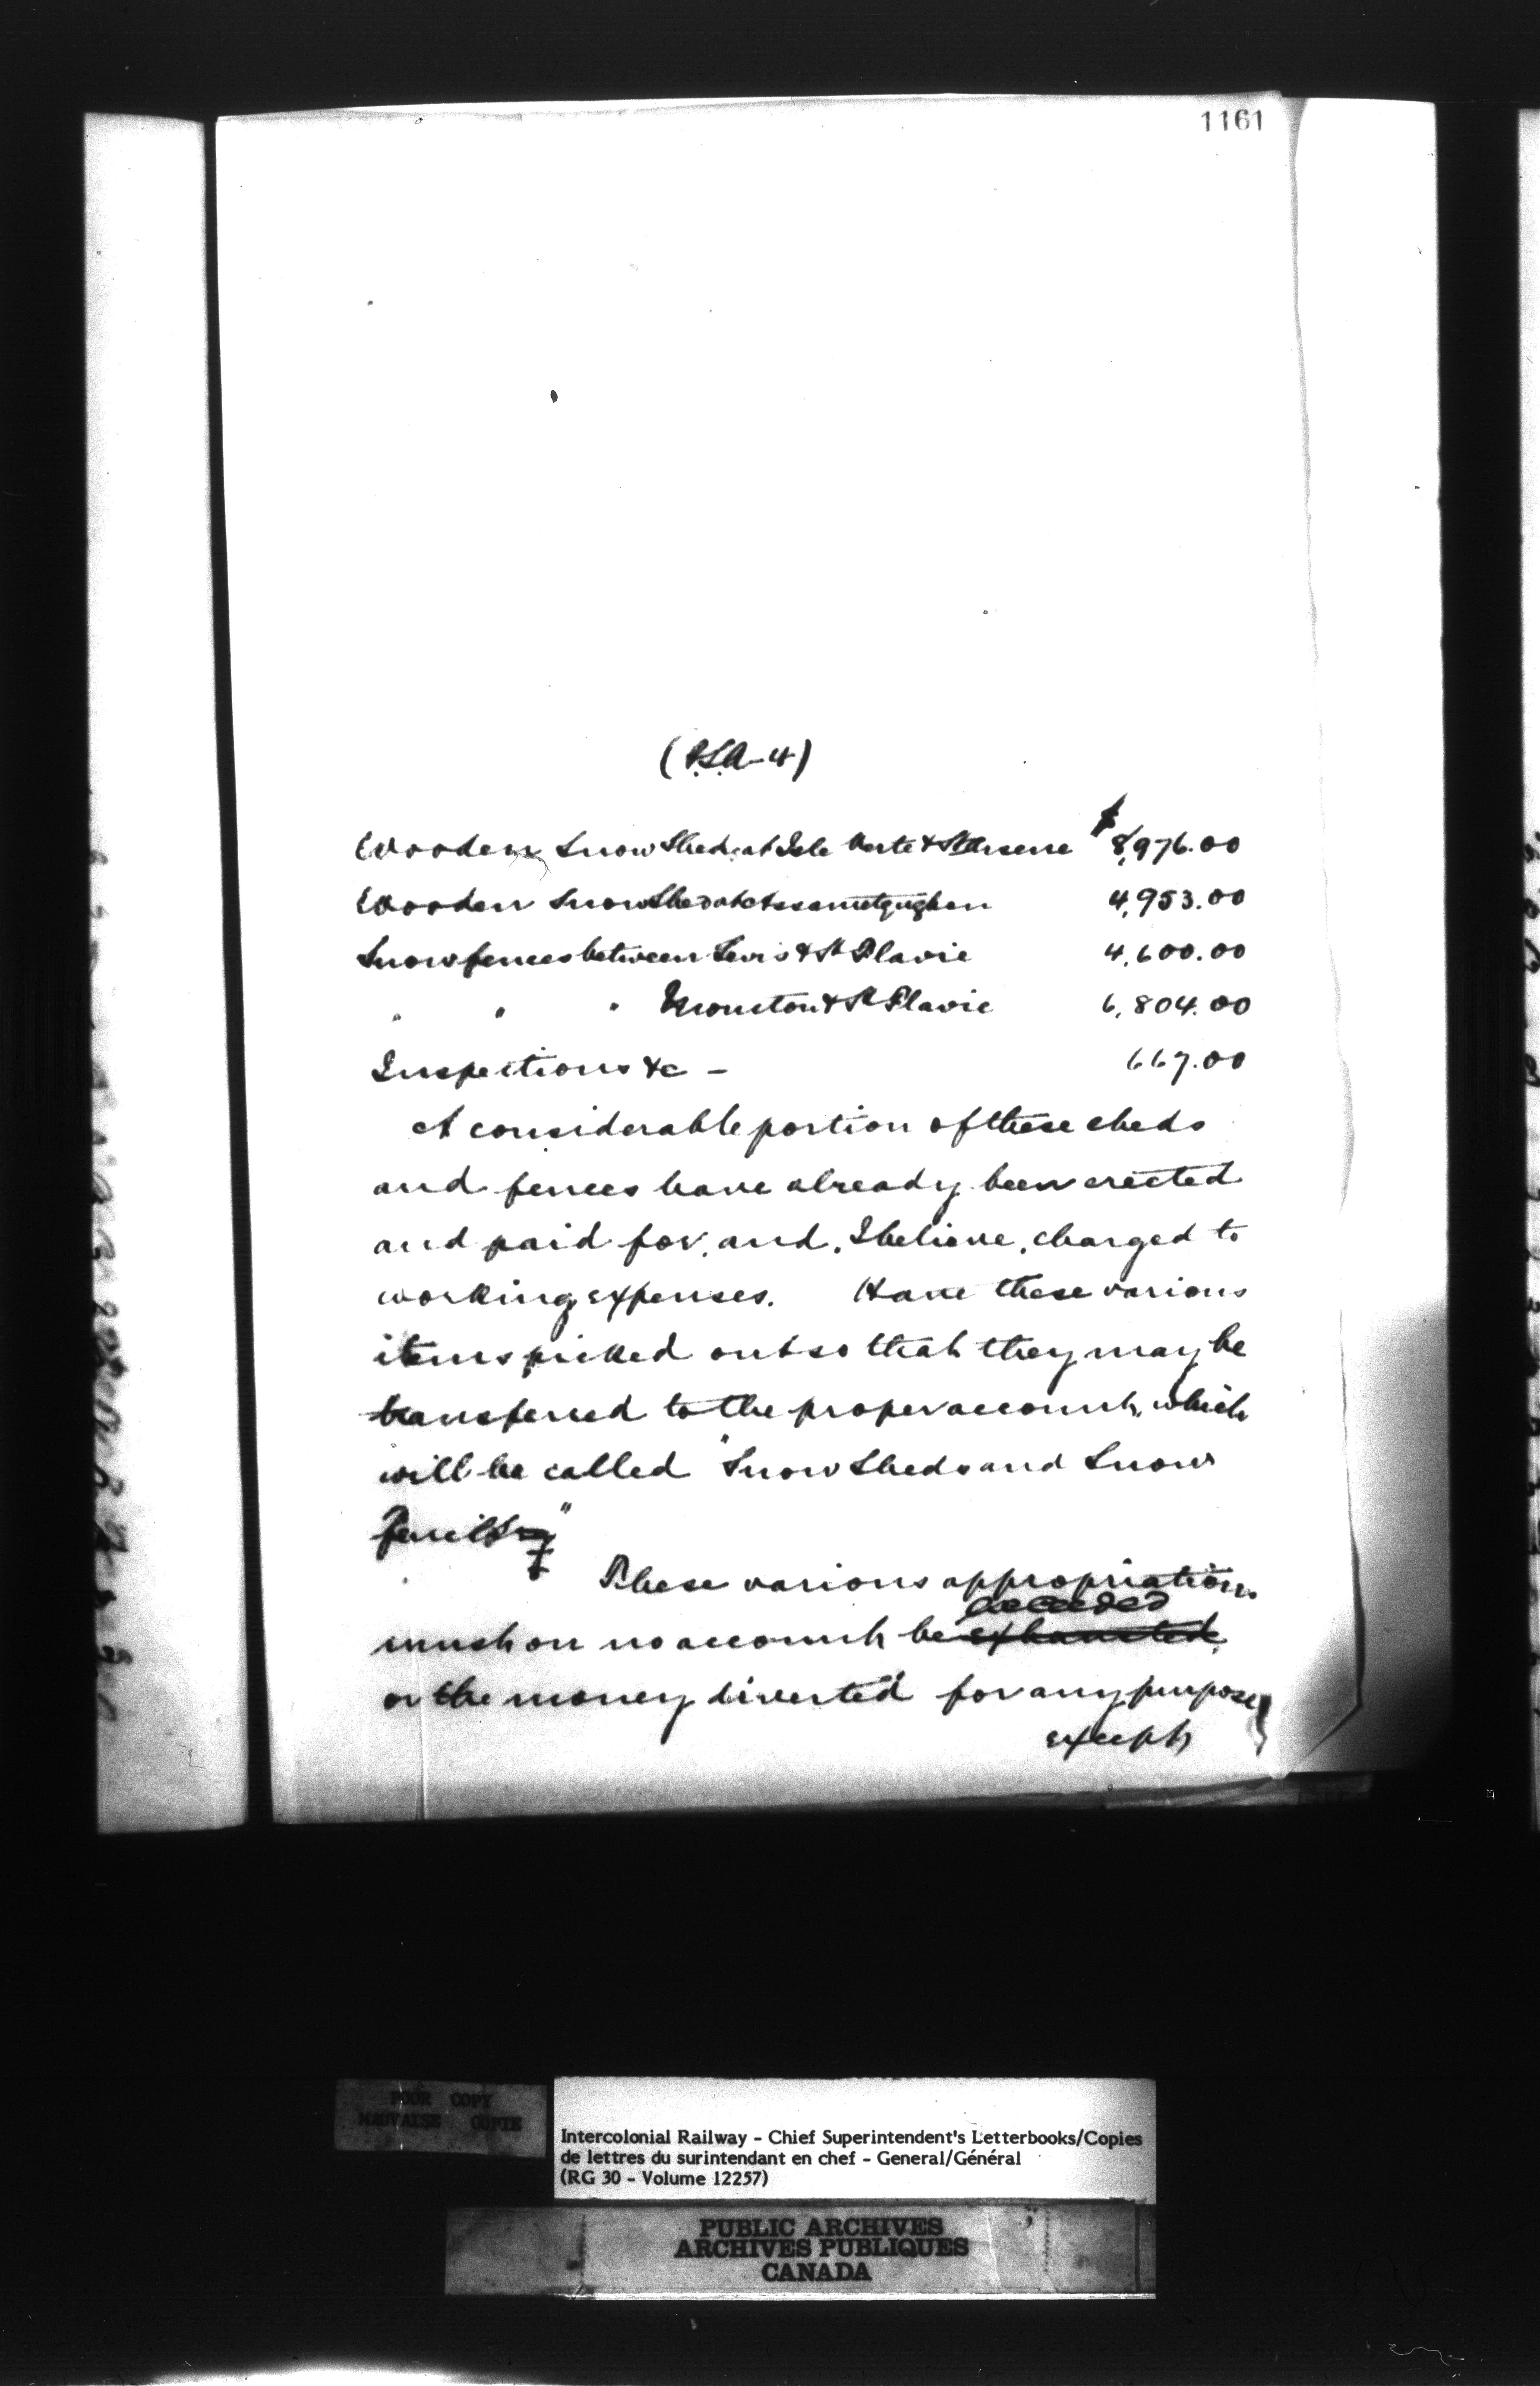 1161
(P.S.A-4)
Wooden Snow Sheds at Isle Verte & St Arsene $8,976.00
Wooden Snow Shed at Assametquaghan 4,953.00
Snow fences between Levis & St Flavie 4,600.00
" " " Moncton & St Flavie 6,804.00
Inspections &c - 667.00
A considerable portion of these sheds
and fences have already been erected
and paid for, and, I believe, charged to
working expenses. Have these various
items picked out so that they may be
transferred to the proper account, which
will be called "Snow Sheds and Snow
These various appropriations
exceeded
must on no account be exhausted,
or the money diverted for any purpose
except
POOR COPY
MAUVAISE COPIE
Intercolonial Railway - Chief Superintendent's Letterbooks/Copies
de lettres du surintendant en chef - General/Général
(RG 30 - Volume 12257)
PUBLIC ARCHIVES
ARCHIVES PUBLIQUES
CANADA